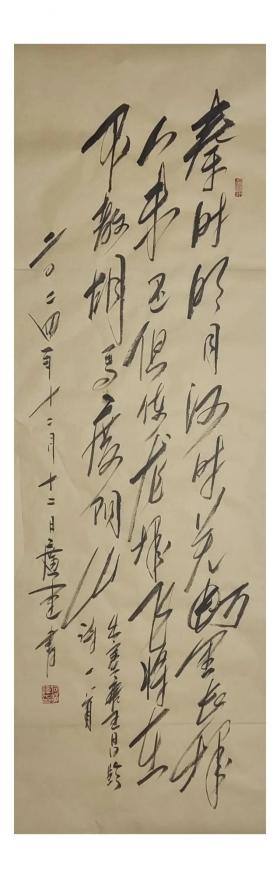 秦时明月汉时关万里长征
人未还但使龙城飞将在
不教胡马度阴山
出塞唐王昌龄
诗一首
二〇二四年十二月十二日书